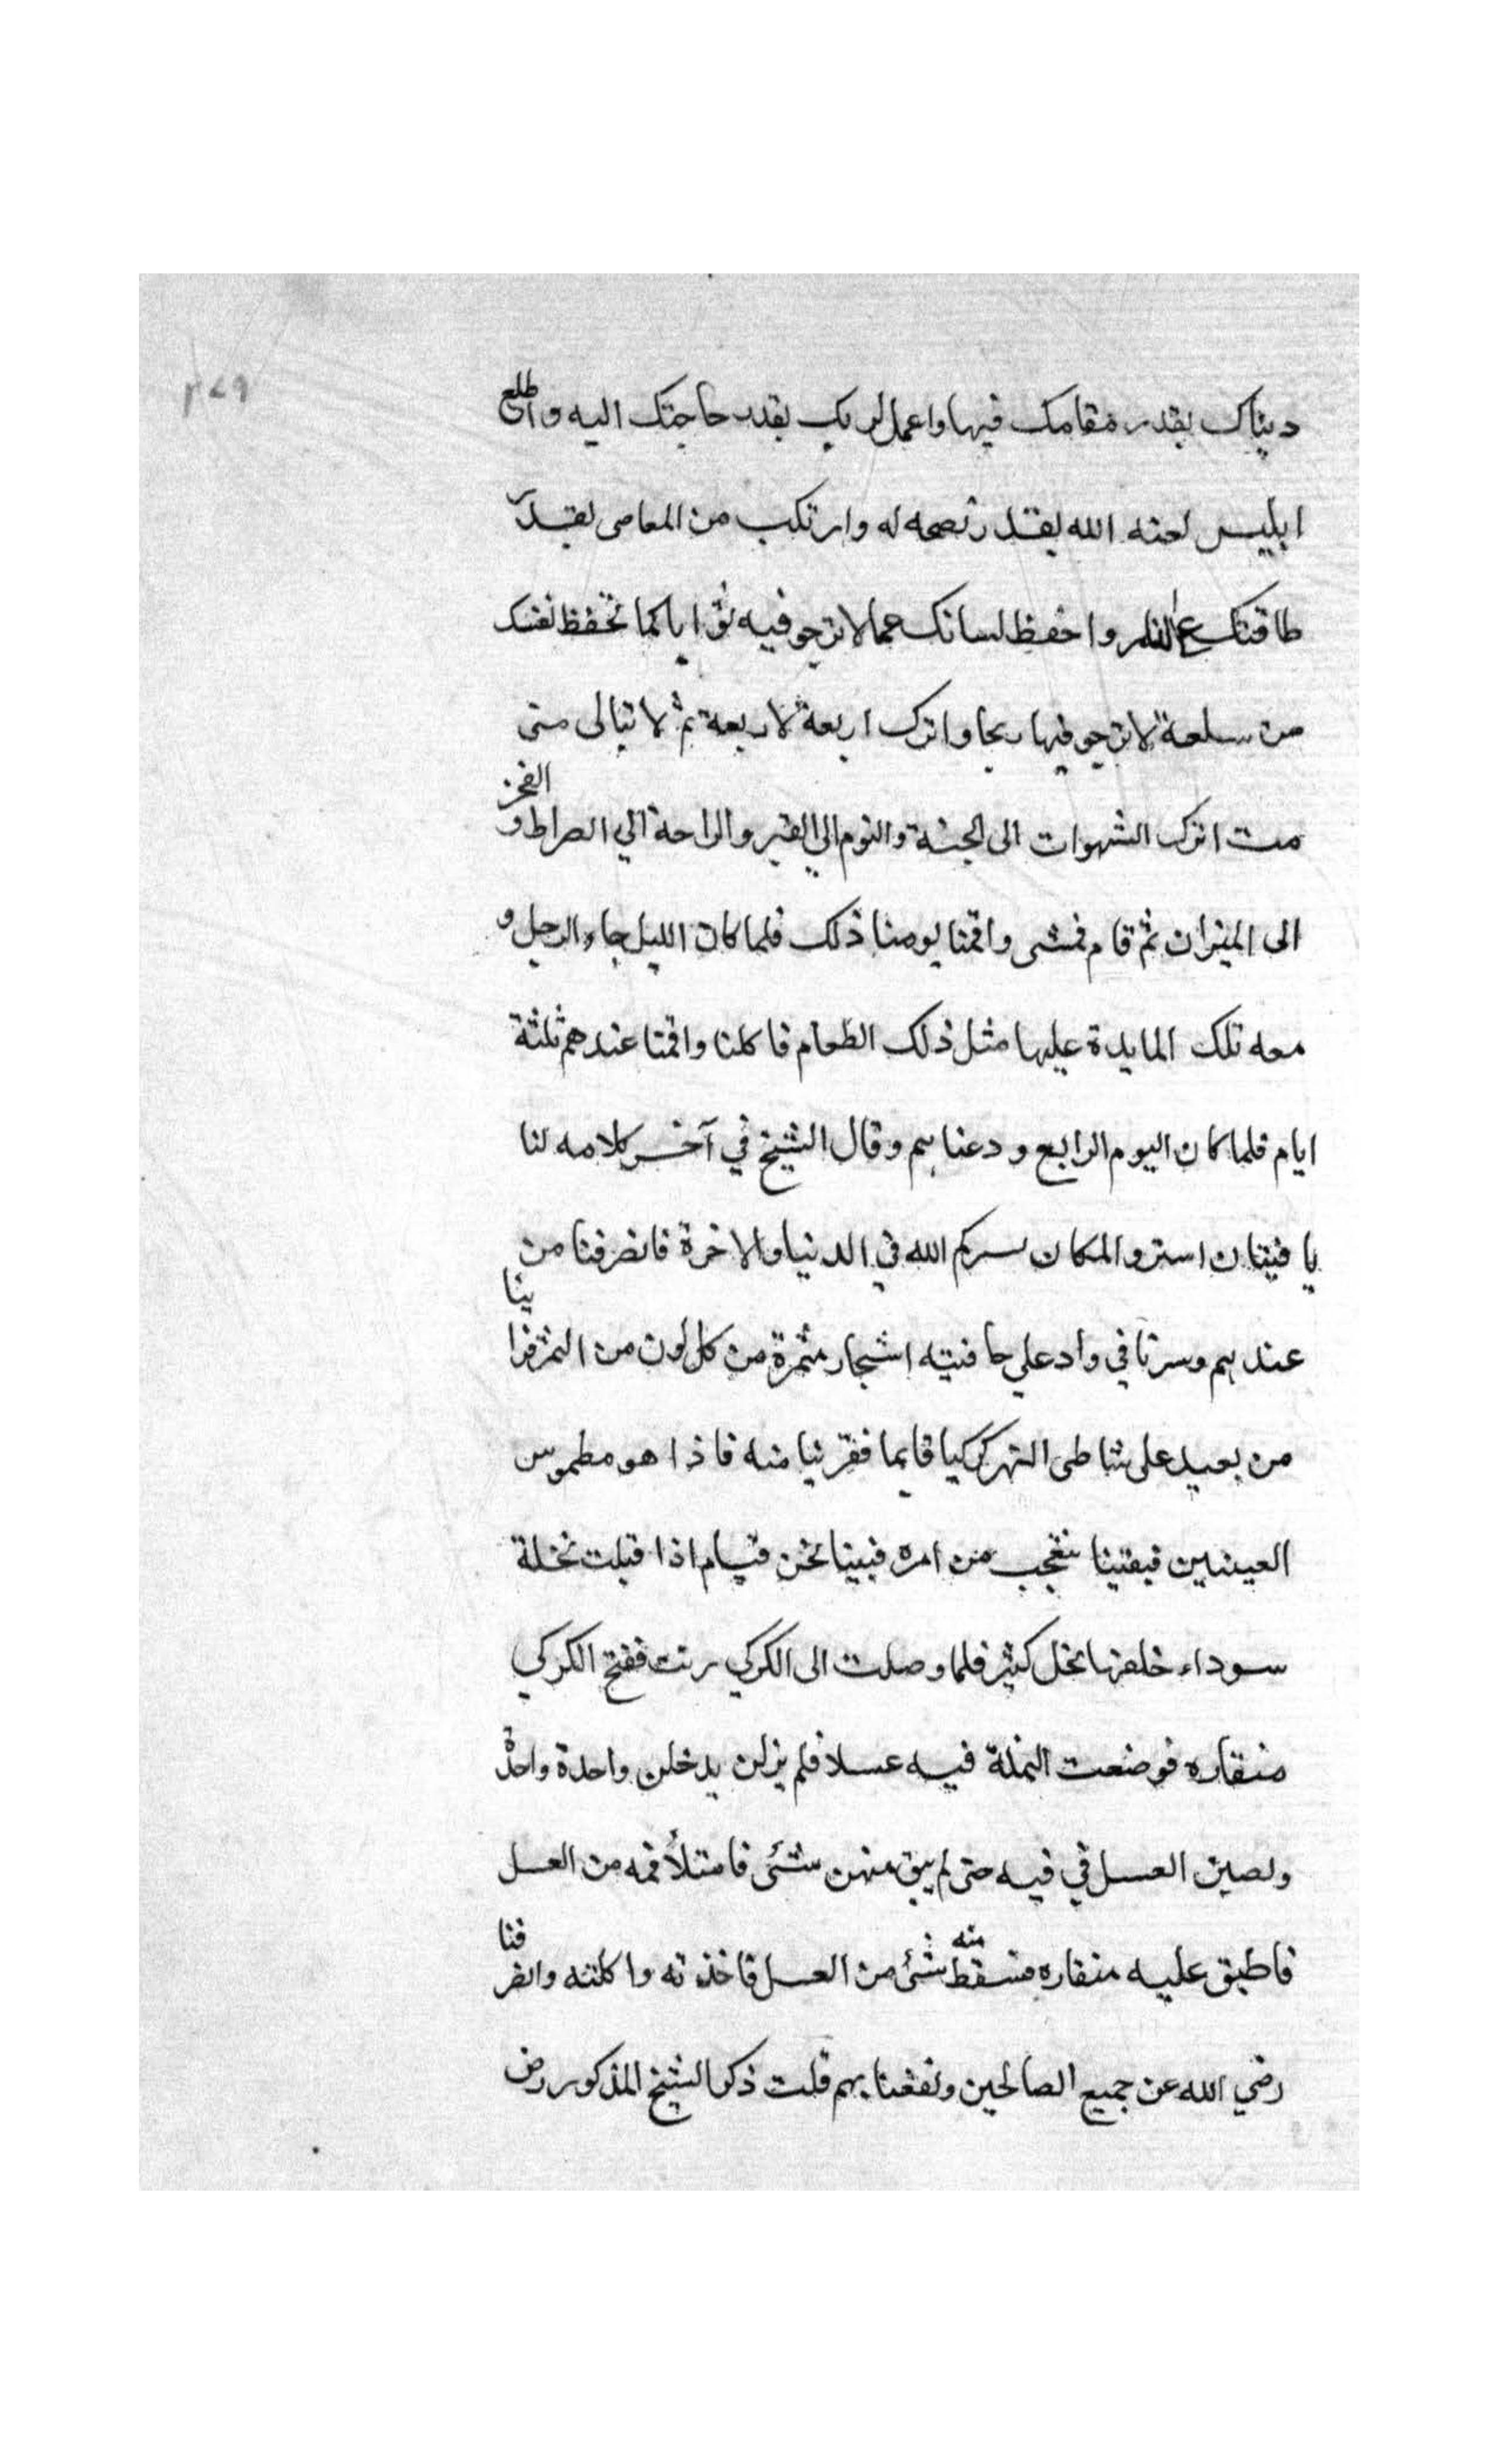 ٣٧٩
دنياك بقدر مقامك فيها واعمل لربك بقدر حاجتك اليه واطلع
ابليس لعنه الله بقدر نصحه له وارتكب من المعاصى بقدر
طاقتك ع النار واحفظ لسانك عما لا ترجو فيه ثوابا كما تحفظ نفسك
من سلعة لا ترجو فيها ربحا واترك اربعة لاربعة ثم لا تبالى متى
مت اترك الشهوات الى الجنة والنوم الى القبر والراحة الي الصراط و الفخر
الى الميزان ثم قام فمشى واقمنا يومنا ذلك فلما كان الليل جاء الرجل و
معه تلك المايدة عليها مثل ذلك الطعام فاكلنا واقمنا عندهم ثلثة
ايام فلما كان اليوم الرابع ودعنا بهم وقال الشيخ في آخر كلامه لنا
يا فتيان استرو المكان سركم الله في الدنيا والاخرة فانصرفنا من
عندهم وسرنا في واد علي حافتيه اشجار مثمرة من كل لون من الثمر فراينا
من بعيد على شاطى النهر كركيا قايما فقربنا منه فاذا هو مطموس
العينين فبقينا نتعجب من امره فبينا نحن قيام اذا قبلت نحلة
سوداء خلفها نحل كثير فلما وصلت الى الكركي رنت ففتح الكركي
منقاره فوضعت النحلة فيه عسلا فلم يزلن يدخلن واحدة واحدة
ولصبن العسل في فيه حتى لم يبق منهن شئى فامتلأ فمه من العسل
فاطبق عليه منقاره فسقط منه شئ من العسل فاخذته واكلته وانصرفنا
رضي الله عن جميع الصالحين ونفعنا بهم قلت ذكر الشيخ المذكور رض